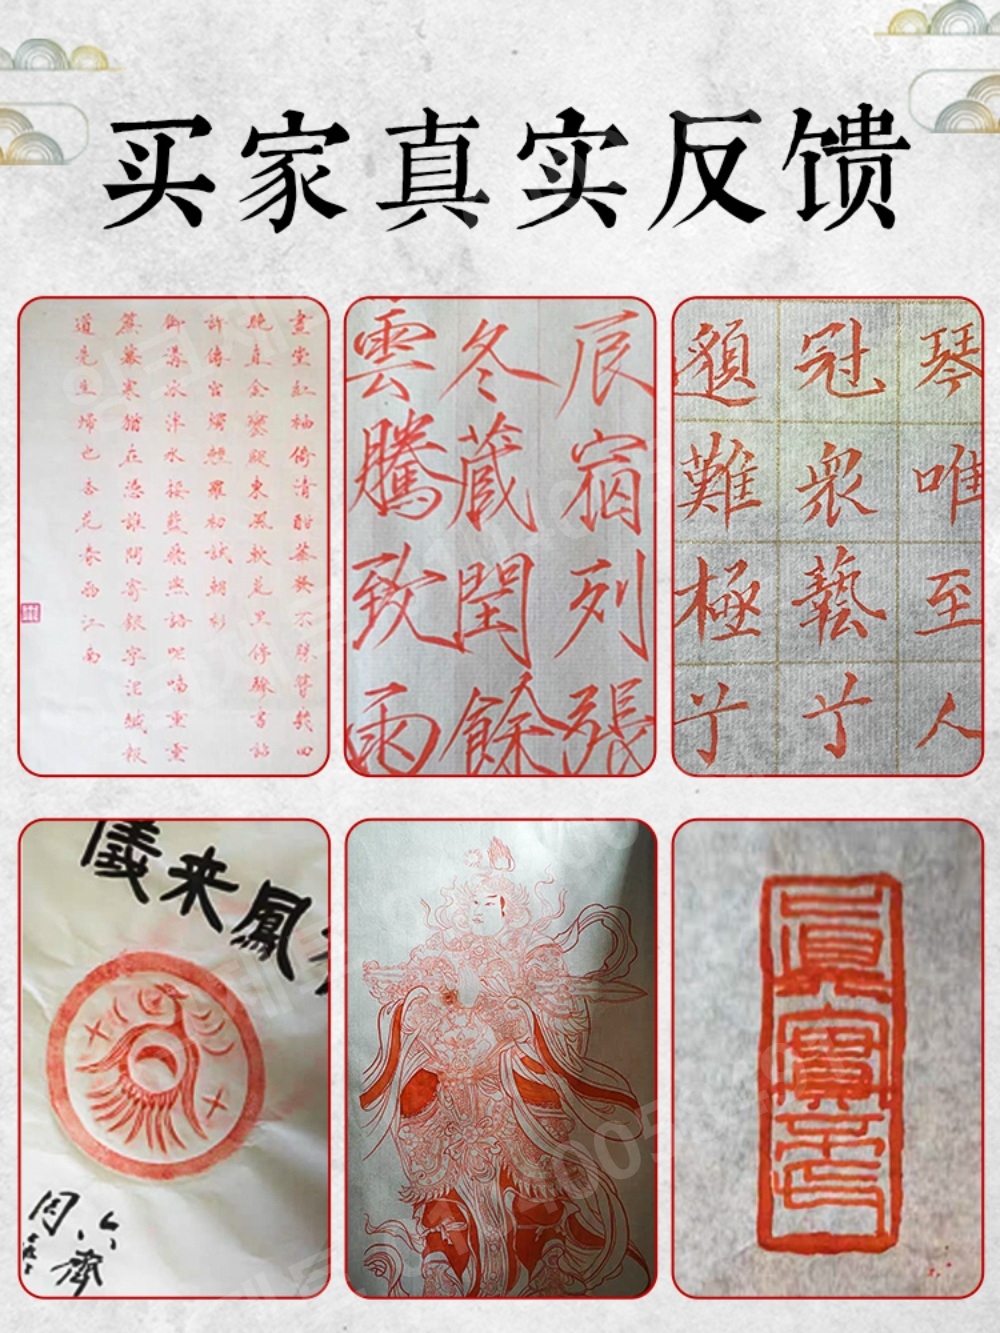 买家真实反馈
畫堂紅袖倚清酣華髮不勝簪幾回
晚直金鑾殿東風軟花里停驂書詔
許傳宮燭羅初試朝衫
御溝冰泮水挼藍飛燕語呢喃重重
簾幕寒猶在憑誰問寄銀字泥緘報
道先生歸也杏花春雨江南
辰宿列張
冬藏閏餘
雲騰致雨
琴唯至人
冠衆藝
難極
鳳来儀
周六齊
眞實